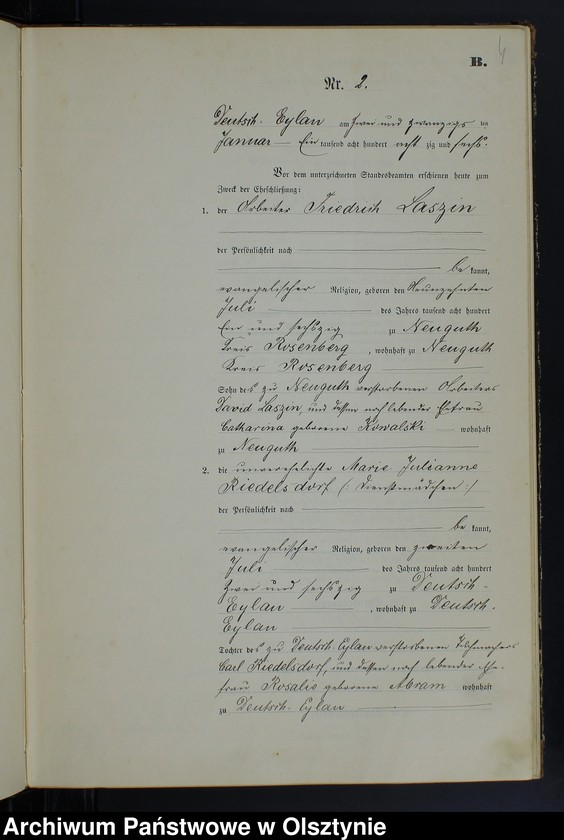 4
B.
Nr. 2.
Deutsch-Eylau am zwei und zwanzigs ten
Januar — Ein tausend acht hundert acht zig und sechs.
Vor dem unterzeichneten Standesbeamten erschienen heute zum
Zweck der Eheschließung:
1. der Arbeiter Friedrich Laszin
der Persönlichkeit nach
be kannt,
evangelischer Religion, geboren den Neunzehnten
Juli des Jahres tausend acht hundert
Ein und sechszig zu Neuguth
Kreis Rosenberg, wohnhaft zu Neuguth
Kreis Rosenberg
Sohn des zu Neuguth verstorbenen Arbeiters
David Laszin, und dessen noch lebender Ehefrau
Catharina geborene Kowalski — wohnhaft
zu Neuguth
2. die unverehelichte Marie Julianne
Riedelsdorf (: Dienstmädchen :)
der Persönlichkeit nach
be kannt,
evangelischer Religion, geboren den zweiten
Juli des Jahres tausend acht hundert
zwei und sechszig zu Deutsch-
Eylau, wohnhaft zu Deutsch-
Eylau
Tochter des zu Deutsch-Eylau verstorbenen Tuchmachers
Carl Riedelsdorf, und dessen noch lebender Ehe-
frau Rosalie geborene Abram wohnhaft
zu Deutsch-Eylau
Archiwum Państwowe w Olsztynie